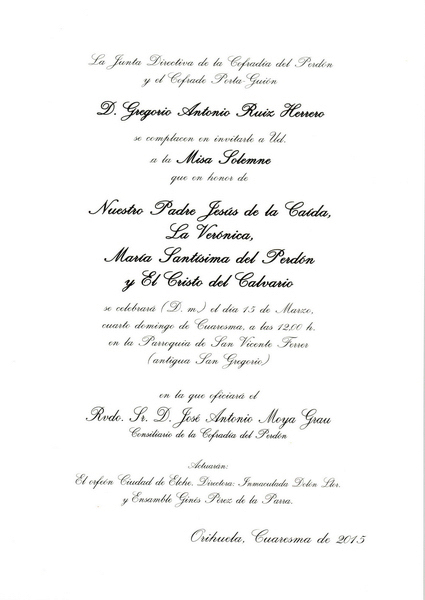 La Junta Directiva de la Cofradía del Perdón
y el Cofrade Porta-Guión
D. Gregorio Antonio Ruiz Herrero
se complacen en invitarle a Ud.
a la Misa Solemne
que en honor de
Nuestro Padre Jesús de la Caída,
La Verónica,
María Santísima del Perdón
y El Cristo del Calvario
se celebrará (D. m.) el día 15 de Marzo,
cuarto domingo de Cuaresma, a las 12,00 h.
en la Parroquia de San Vicente Ferrer
(antigua San Gregorio)
en la que oficiará el
Rvdo. Sr. D. José Antonio Moya Grau
Consiliario de la Cofradía del Perdón
Actuarán:
El orfeón Ciudad de Elche. Directora: Inmaculada Dolón Llor.
y Ensamble Ginés Pérez de la Parra.
Orihuela, Cuaresma de 2015